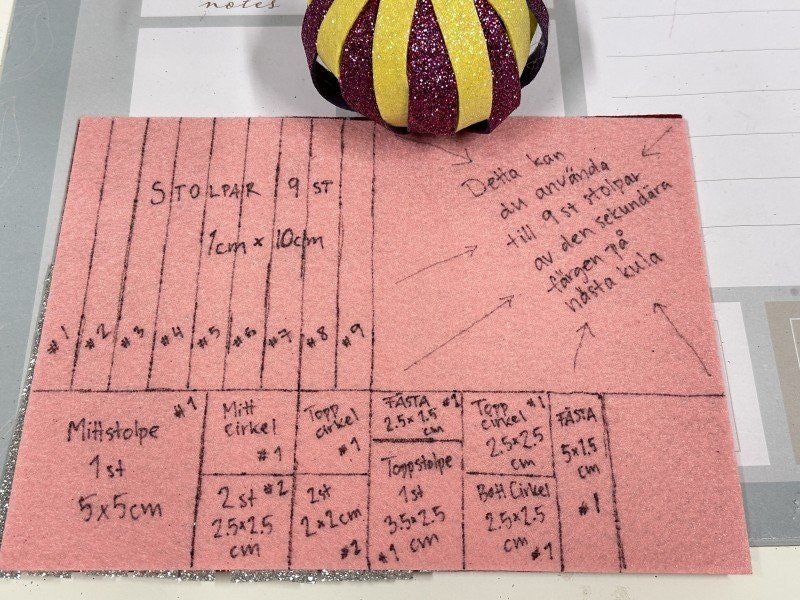 notes
STOLPAR 9 ST
1cm x 10cm
#1 #2 #3 #4 #5 #6 #7 #8 #9
Detta kan
du använda
till 9 st stolpar
av den sekundära
färgen på
nästa kula
Mittstolpe #1
1st
5x5cm
Mitt
cirkel
#1
2st #2
2.5x2.5
cm
Topp
cirkel
#1
2st
2x2cm
#2
FÄSTA #1
2.5x1.5
cm
Toppstolpe
1st
3.5x2.5
#1 cm
Topp #1
cirkel
2.5x2.5
cm
Bott Cirkel
2.5x2.5
cm #1
FÄSTA
5x1.5
cm
#1